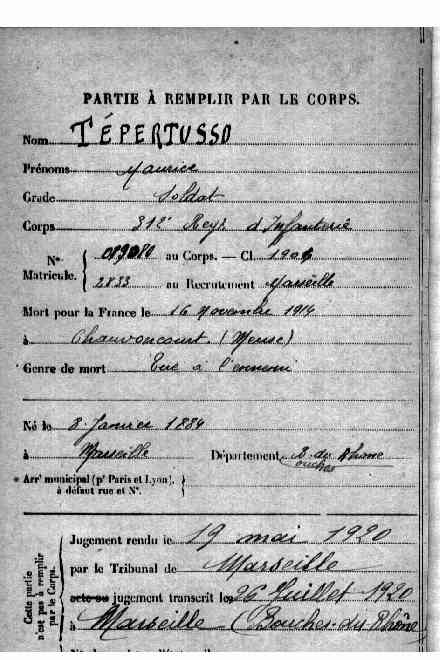 PARTIE À REMPLIR PAR LE CORPS.
Nom TÉPERTUSSO
Prénoms Maurice
Grade Soldat
Corps 312e Regt d'Infanterie
N° Matricule. au Corps. — Cl. 1904
2833 au Recrutement Marseille
Mort pour la France le 16 Novembre 1914
à Chauvoncourt (Meuse)
Genre de mort Tué à l'ennemi
Né le 8 Janvier 1884
à Marseille Département B. du Rhône
ouches
Arrt municipal (pr Paris et Lyon),
à défaut rue et N°.
Cette partie n'est pas à remplir par le Corps.
Jugement rendu le 19 mai 1920
par le Tribunal de Marseille
acte ou jugement transcrit le 26 Juillet 1920
à Marseille (Bouches-du-Rhône